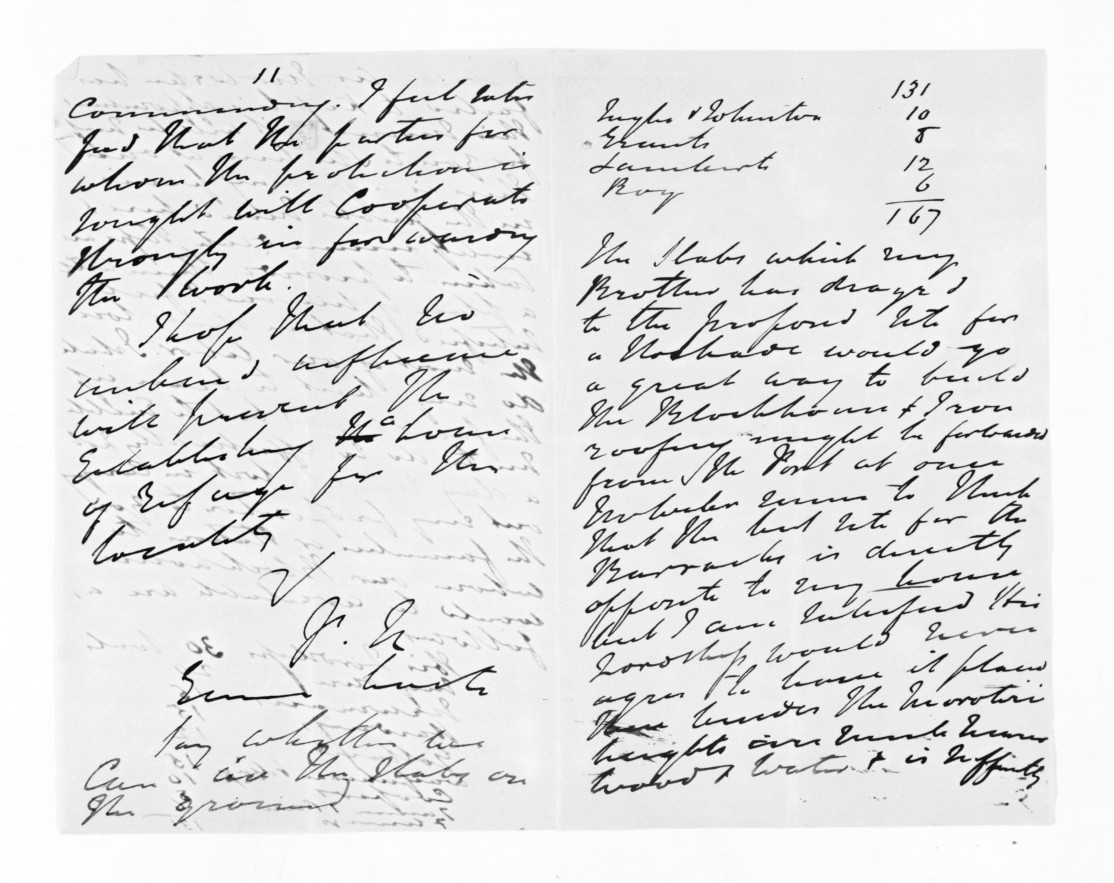 11
Commandry. I feel satis
fied that the parties for
whom the protection is
sought will Cooperate
through in forwarding
the work.
I hope that no
influence
will prevent the
Establishing the a house
of Refuge for this
locality
P. S.
Search
Say whether we
Can use the Slabs on
the ground
131
Inglis & Johnston 10
Grants 8
Lamberts 12
Roy 6
167
The Slabs which my
Brother has draged
to the proposed site for
a Stockade would go
a great way to build
the Blockhouse & Iron
roofing might be forwarded
from the Port at once
seems to think
that the best site for the
Barracks is directly
opposite to my house
but I am satisfied His
Lordship would never
agree to have it placed
there besides the
heights are much nearer
wood & water & is sufficiently